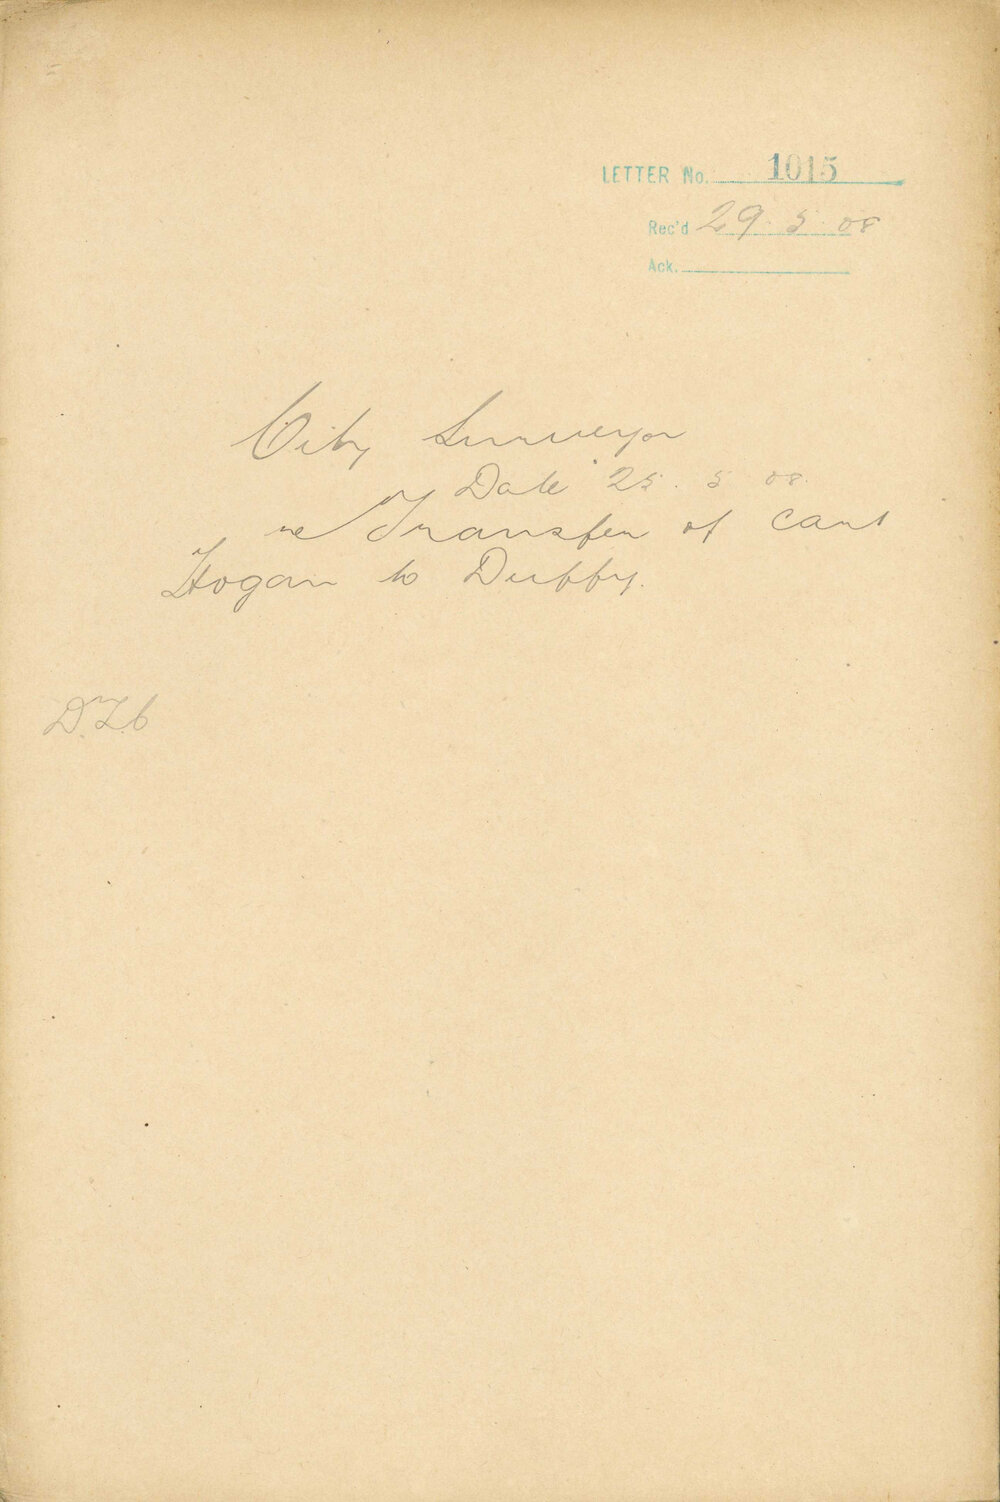 LETTER No. 1015
Rec'd 29.5.08
Ack.
City Surveyor
Date 25.5.08.
re Transfer of cart
Hogan to Duffy.